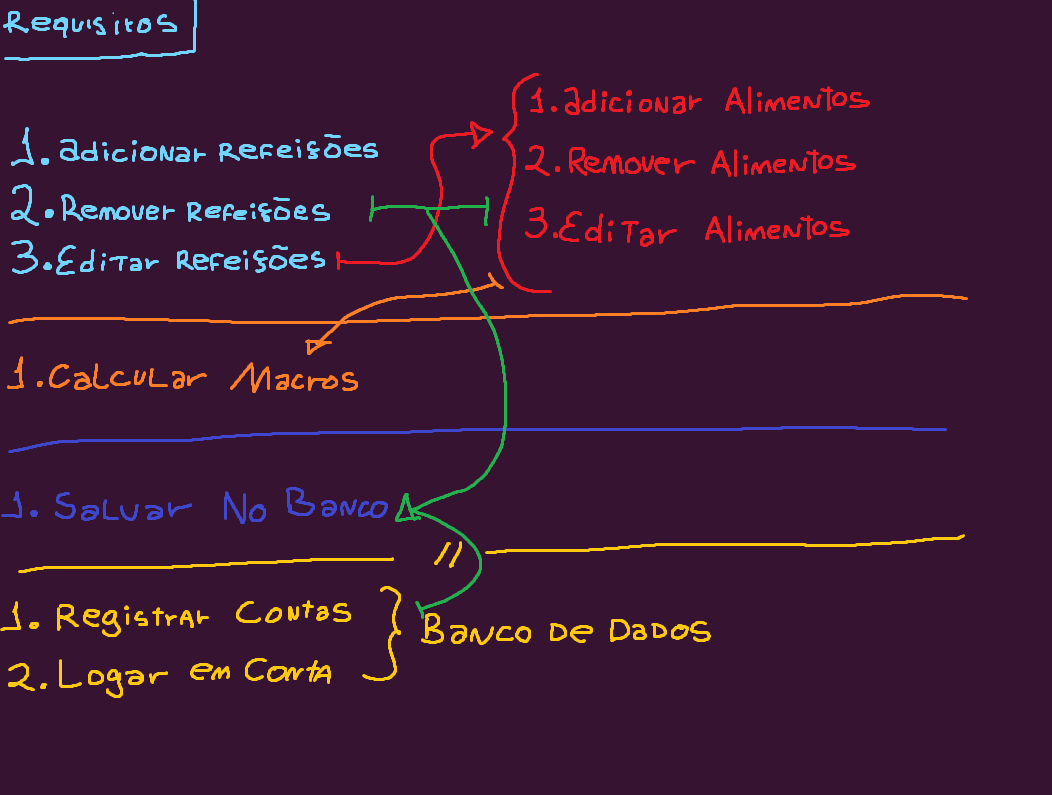 Requisitos
1. adicionar Refeişões
2. Remover Refeişões
3. Editar Refeişões
1. adicionar Alimentos
2. Remover Alimentos
3. Editar Alimentos
1. Calcular Macros
1. Salvar No Banco
//
1. Registrar Contas
2. Logar em Conta
Banco de Dados